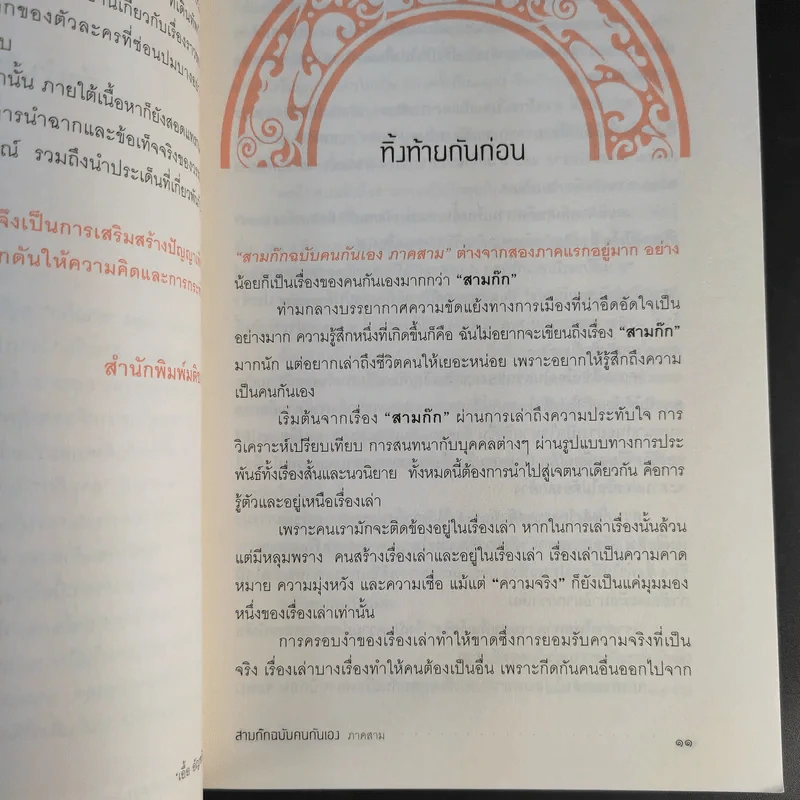 กของตัวละครที่ซ่อนปมบาง
านั้น ภายใต้เนื้อหาก็ยังสอดแทรก
ารนำฉากและข้อเท็จจริงของ
ณ์ รวมถึงนำประเด็นที่เกี่ยวพัน
จึงเป็นการเสริมสร้างปัญญา
กดันให้ความคิดและการกระ
สำนักพิมพ์มติช
ทิ้งท้ายกันก่อน
“สามก๊กฉบับคนกันเอง ภาคสาม” ต่างจากสองภาคแรกอยู่มาก อย่าง
น้อยก็เป็นเรื่องของคนกันเองมากกว่า “สามก๊ก”
ท่ามกลางบรรยากาศความขัดแย้งทางการเมืองที่น่าอึดอัดใจเป็น
อย่างมาก ความรู้สึกหนึ่งที่เกิดขึ้นก็คือ ฉันไม่อยากจะเขียนถึงเรื่อง “สามก๊ก”
มากนัก แต่อยากเล่าถึงชีวิตคนให้เยอะหน่อย เพราะอยากให้รู้สึกถึงความ
เป็นคนกันเอง
เริ่มต้นจากเรื่อง “สามก๊ก” ผ่านการเล่าถึงความประทับใจ การ
วิเคราะห์เปรียบเทียบ การสนทนากับบุคคลต่างๆ ผ่านรูปแบบทางการประ
พันธ์ทั้งเรื่องสั้นและนวนิยาย ทั้งหมดนี้ต้องการนำไปสู่เจตนาเดียวกัน คือการ
รู้ตัวและอยู่เหนือเรื่องเล่า
เพราะคนเรามักจะติดข้องอยู่ในเรื่องเล่า หากในการเล่าเรื่องนั้นล้วน
แต่มีหลุมพราง คนสร้างเรื่องเล่าและอยู่ในเรื่องเล่า เรื่องเล่าเป็นความคาด
หมาย ความมุ่งหวัง และความเชื่อ แม้แต่ “ความจริง” ก็ยังเป็นแค่มุมมอง
หนึ่งของเรื่องเล่าเท่านั้น
การครอบงำของเรื่องเล่าทำให้ขาดซึ่งการยอมรับความจริงที่เป็น
จริง เรื่องเล่าบางเรื่องทำให้คนต้องเป็นอื่น เพราะกีดกันคนอื่นออกไปจาก
สามก๊กฉบับคนกันเอง ภาคสาม
๑๑